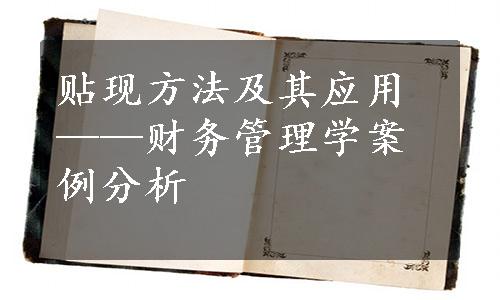 贴现方法及其应用
——财务管理学案
例分析